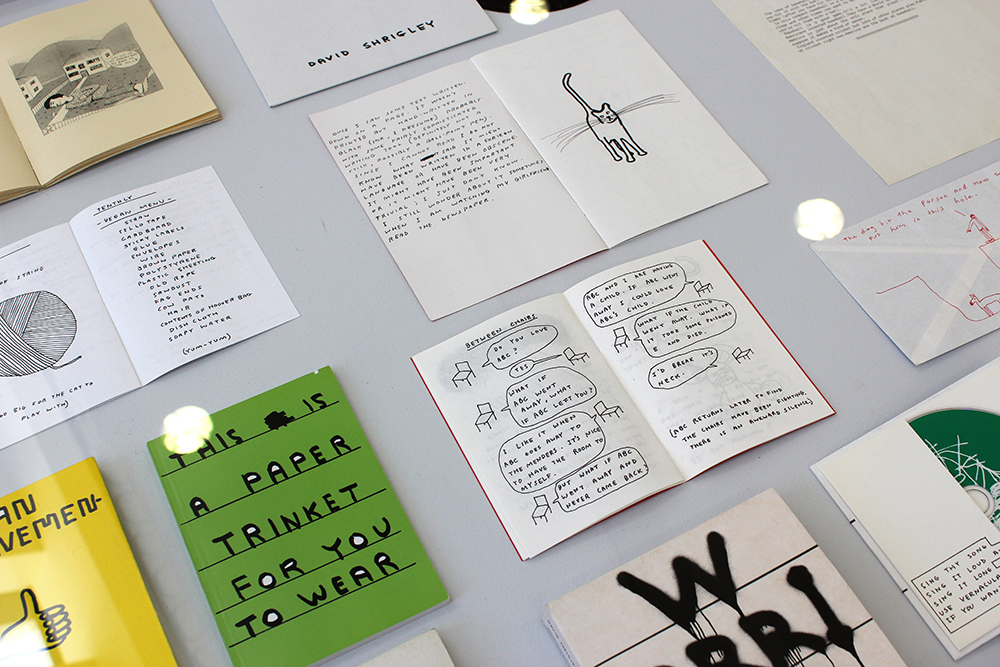 DAVID SHRIGLEY
ONCE I SAW SOME TEXT WRITTEN
DOWN ON A PAGE IT WASN'T
PRINTED BUT HAND-WRITTEN IN
BLACK INK (I PRESUME) PROBABLY
WITH SOME KIND OF SOPHISTICATED
WRITING
SINCE I CANNOT READ I DO NOT
KNOW WHAT IT SAID IT MIGHT
HAVE BEEN WRITTEN IN A FOREIGN
LANGUAGE OR HAVE BEEN OBSCENE.
IT MIGHT HAVE BEEN IMPORTANT OR
TRIVIAL I JUST DON'T KNOW.
I STILL WONDER ABOUT IT SOMETIMES
WHEN I AM WATCHING MY GIRLFRIEND
READ THE NEWSPAPER.
TENTHLY
-VEGAN MENU-
STRAW
SELLOTAPE
CARDBOARD
STICKY LABELS
GLUE
ENVELOPES
WIRE
BROWN PAPER
POLYSTYRENE
PLASTIC SHEETING
OLD ROPE
SAWDUST
FAG ENDS
COW PATS
HAIR
CONTENTS OF HOOVER BAG
DISH CLOTH
SOAPY WATER
(YUM-YUM)
OF STRING
BIG FOR THE CAT TO
PLAY WITH)
BETWEEN CHAIRS
DO YOU LOVE
ABC?
YES
WHAT IF
ABC WENT
AWAY, WHAT
IF ABC LEFT YOU?
I LIKE IT WHEN
ABC GOES AWAY TO
THE MENDERS. IT'S NICE
TO HAVE THE ROOM TO
MYSELF.
BUT WHAT IF ABC
WENT AWAY AND
NEVER CAME BACK.
ABC AND I ARE HAVING
A CHILD. IF ABC WENT
AWAY I COULD LOVE
ABC'S CHILD.
WHAT IF THE CHILD
WENT AWAY. WHAT IF
IT TOOK SOME POISONED
E AND DIED.
I'D BREAK IT'S
NECK.
(ABC RETURNS LATER TO FIND
THE CHAIRS HAVE BEEN FIGHTING.
THERE IS AN AWKWARD SILENCE)
The dog bit the parson and now
put him in this hole.
THIS IS
A PAPER
TRINKET
FOR YOU
TO WEAR
AN
VEMEN
W
RR!
SING THY SONG
SING IT LOUD A
SING IT LONG
USE VERNACUL
IF YOU WANT